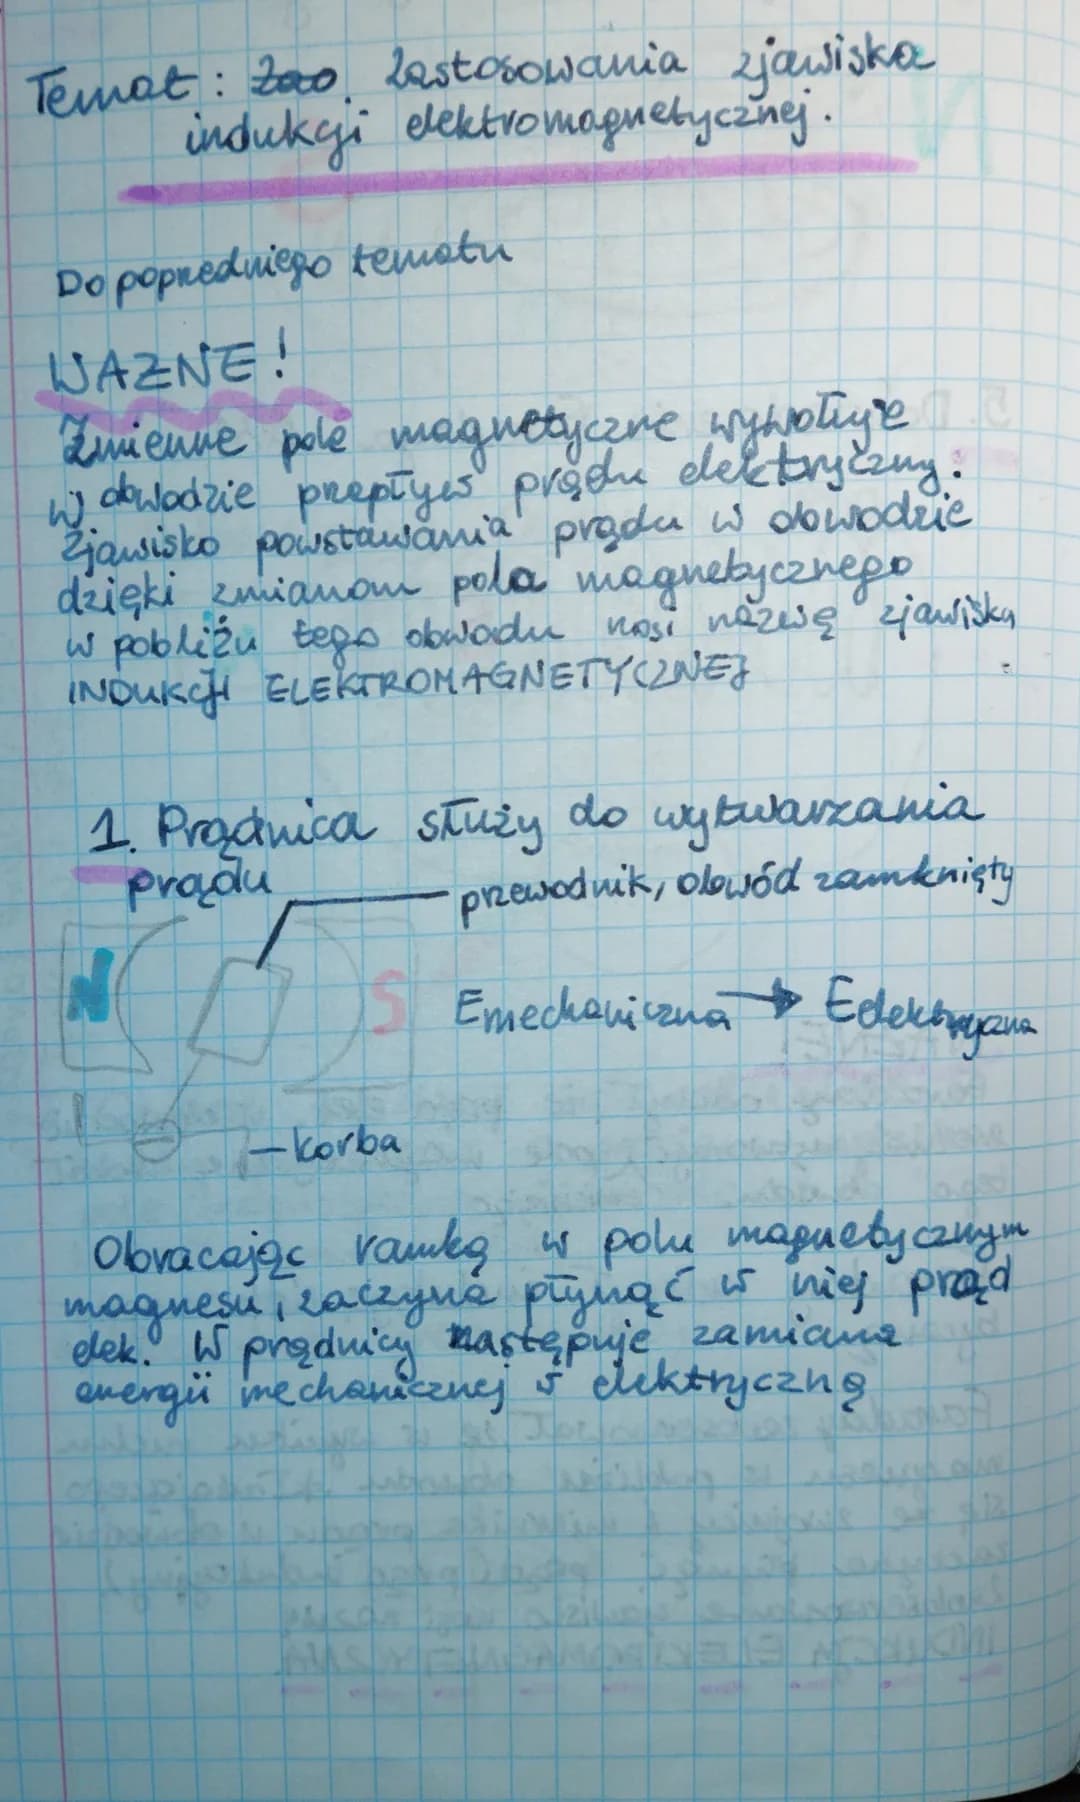 Temat: Zastosowania zjawiska
indukcji elektromagnetycznej.
Do poprzedniego tematu
WAŻNE!
Zmienne pole magnetyczne wywołuje
w obwodzie przepływ prądu elektryczny.
Zjawisko powstawania prądu w obwodzie
dzięki zmianom pola magnetycznego
w pobliżu tego obwodu nosi nazwę zjawiska
INDUKCJI ELEKTROMAGNETYCZNEJ
1. Prądnica służy do wytwarzania
prądu
przewodnik, obwód zamknięty
N
S
Emechaniczna → Eelektryczna
- korba
Obracając ramką w polu magnetycznym
magnesu, zaczyna płynąć w niej prąd
elek. W prądnicy następuje zamiana
energii mechanicznej w elektryczną